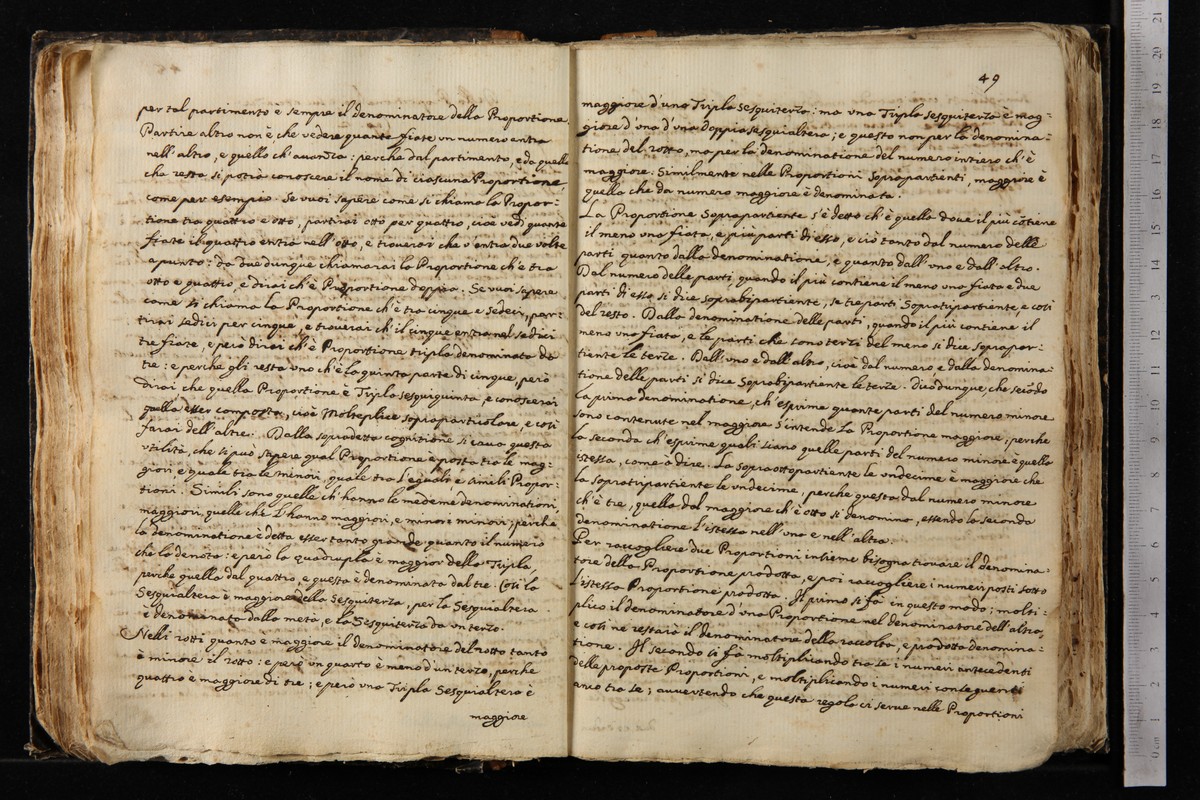 per tal partimento è sempre il denominatore della Proportione.
Partire altro non è, che vedere quante fiate un numero entra
nell'altro, e quello ch'auanza: perche dal partimento, e da quello
che resta si potrà conoscere il nome di ciascuna Proportione,
come per essempio. Se vuoi sapere come si chiama la Propor-
tione tra quattro e otto, partirai otto per quattro, cioè vedi quante
fiate il quattro entra nell'otto, e trouerai che v'entra due volte
apunto: da due dunque chiamarai la Proportione ch'è tra
otto e quattro, e dirai ch'è Proportione doppia. Se vuoi sapere
come si chiama la Proportione ch'è tra cinque e sedici, par-
tirai sedici per cinque, e trouerai ch'il cinque entra nel sedici
tre fiate, e però dirai ch'è Proportione tripla denominata da
tre: e perche gli resta vno ch'è la quinta parte di cinque, però
dirai che quella Proportione è Tripla sesquiquinta, e conoscerai
quella esser composta, cioè Moltiplice sopraparticolare, e così
farai dell'altre. Dalla sopradetta cognitione si caua questa
vtilità, che si può sapere qual Proportione è posta tra le mag-
giori, e quale tra le minori, quale tra l'eguali e simili Propor-
tioni. Simili sono quelle ch'hanno le medeme denominationi,
maggiori, quelle che l'hanno maggiori, e minore minori; perche
la denominatione è detta esser tanto grande, quanto il numero
che lo denota: e però la quadrupla è maggior della Tripla,
perche quella dal quattro, e questa è denominata dal tre. Così la
Sesquialtera è maggiore della Sesquiterza, per la Sesquialtera
è denominata dalla metà, e la Sesquiterza da vn terzo.
Nelli rotti quanto è maggiore il denominatore del rotto tanto
è minore il rotto: e però vn quarto è meno d'un terzo, perche
quattro è maggiore di tre; e però vna Tripla Sesquialtera è
maggiore
49
maggiore d'una Tripla sesquiterza: ma vna Tripla sesquiterza è mag-
giore d'vna d'vna doppia sesquialtera; e questo non per la denomina-
tione del rotto, ma per la denominatione del numero intiero ch'è
maggiore. Similmente nelle Proportioni Soprapartienti, maggiore è
quella che da numero maggiore è denominata.
La Proportione Soprapartiente s'è detto ch'è quella doue il più cōtiene
il meno vna fiata, e più parti di esso, e ciò tanto dal numero delle
parti quanto dalla denominatione, e quanto dall'vno e dall'altro.
Dal numero delle parti, quando il più contiene il meno vna fiata e due
parti di esso si dice soprabipartiente, se tre parti Sopratripartiente, e così
del resto. Dalla denominatione delle parti, quando il più contiene il
meno vna fiata, e le parti che sono terzi del meno si dice soprapar-
tiente le terze. Dall'vno e dall'altro, cioè dal numero, e dalla denomina-
tione delle parti si dice Soprabipartiente le terze. Dico dunque, che secōdo
la prima denominatione, ch'esprime quante parti del numero minore
sono contenute nel maggiore s'intende la Proportione maggiore; perche
la seconda ch'esprime quali siano quelle parti del numero minore è quella
istessa, come à dire. La sopraottopartiente le vndecime è maggiore che
la sopratripartiente le vndecime, perche questa dal numero minore
ch'è tre, quella dal maggiore ch'è otto si denomina, essendo la seconda
denominatione l'istessa nell'vna e nell'altra.
Per raccogliere due Proportioni insieme bisogna trouare il denomina-
tore della Proportione prodotta, e poi raccogliere i numeri posti sotto
l'istessa Proportione prodotta. Il primo si fà in questo modo; molti-
plico il denominatore d'vna Proportione nel denominatore dell'altra,
e così ne restarà il denominatore della raccolta, e prodotta denomina-
tione. Il secondo si fà moltiplicando tra se i numeri antecedenti
delle proposte Proportioni, e moltiplicando i numeri conseguenti
anco tra se; auuertendo che questa regola ci serue nelle Proportioni